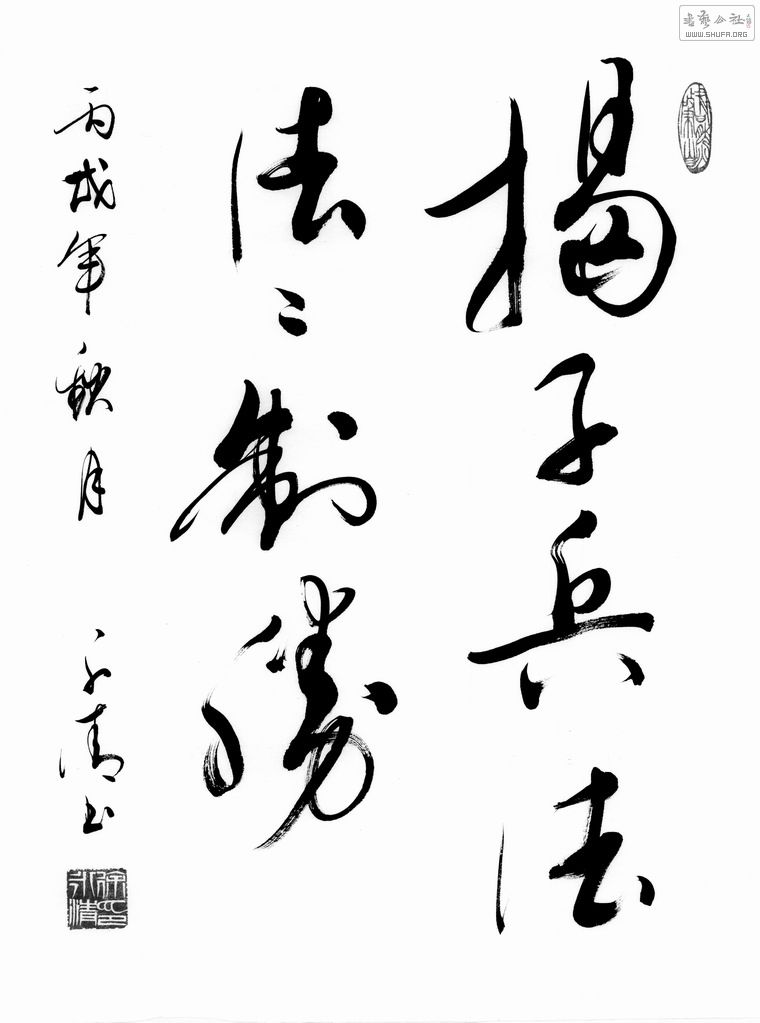 揚子兵法
法〻制勝
丙戌年秋月 永清书
徐永清印
书艺公社
WWW.SHUFA.ORG